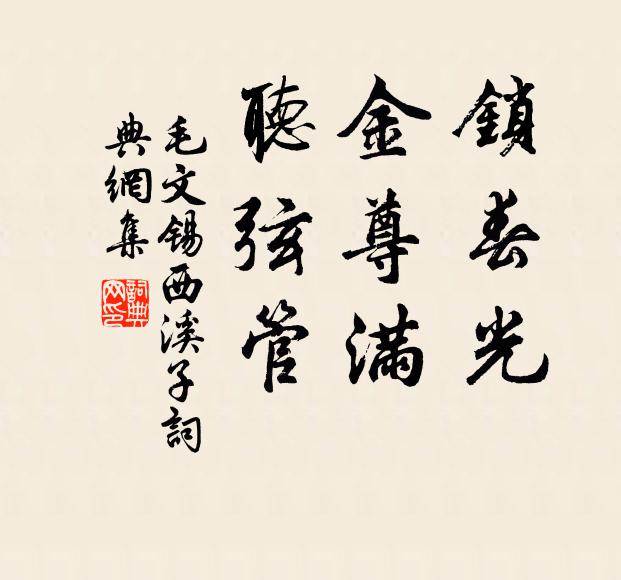 鎖春光
金尊滿
聽弦管
毛文錫西溪子詞
典網集
詞典
网印